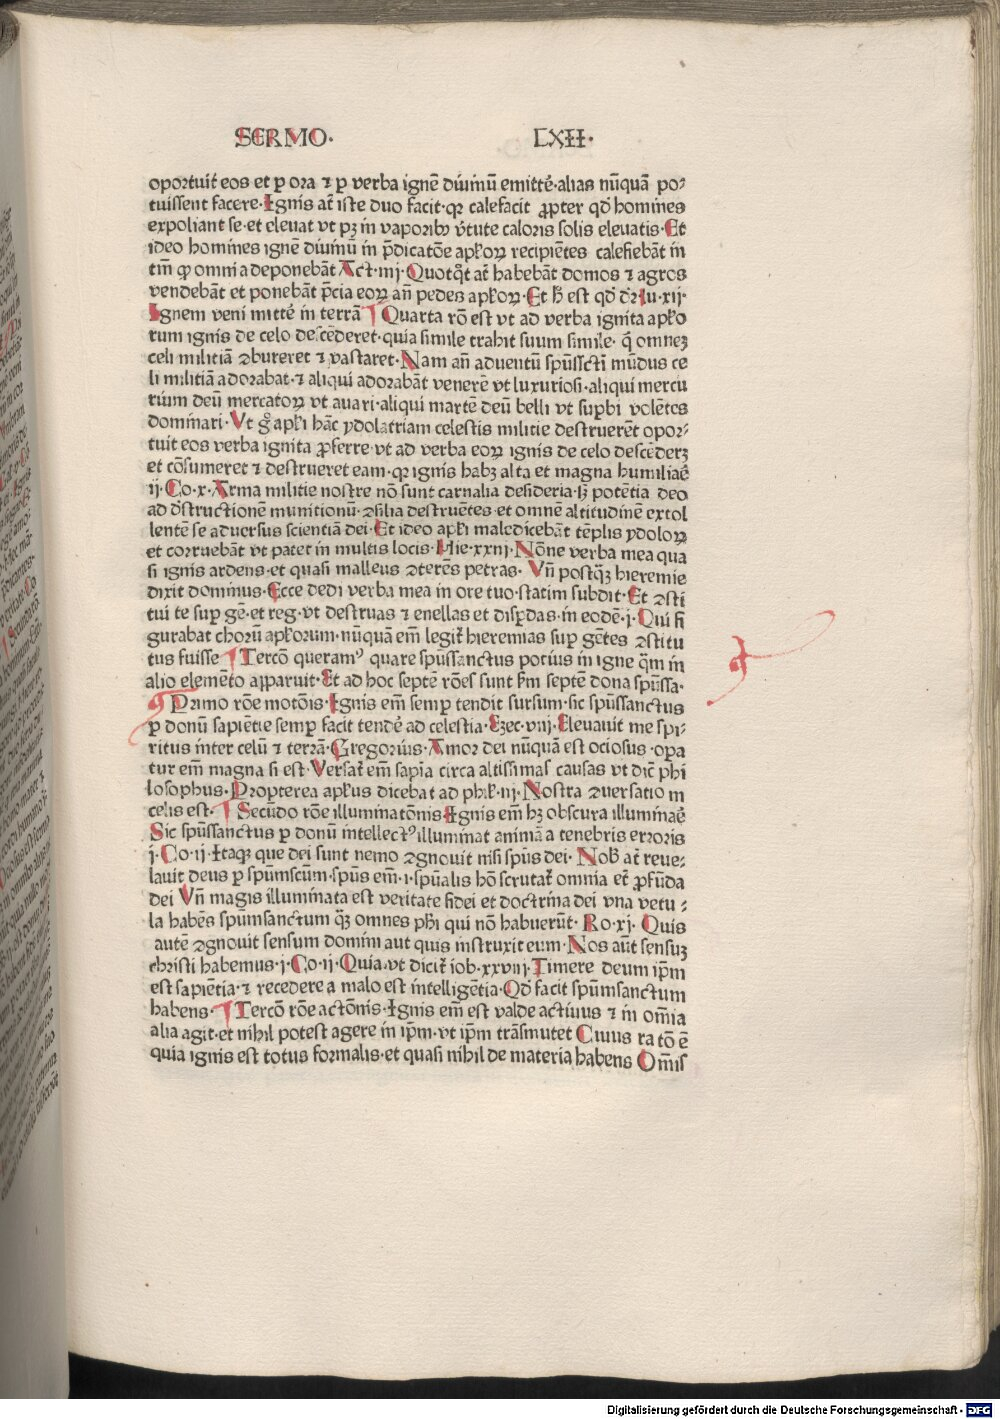 SERMO· LXII·
oportuit eos et ꝑ ora ⁊ ꝑ verba ignē diuinū emittē·alias nūquā po⸗
tuissent facere·Ignis at̄ iste duo facit·qꝛ calefacit ꝓpter qd̄ homines
expoliant se·et eleuat vt pꝫ in vaporibꝰ v̄tute caloris solis eleuatis·Et
ideo homines ignē diuinū in p̄dicatōe apl'oꝝ recipiētes calefiebāt in
tm̄ ꝙ omnia deponebāt Act·iiij·Quotqͦt at̄ habebāt domos ⁊ agros
vendebāt et ponebāt p̄cia eoꝝ an̄ pedes apl'oꝝ·Et h̄ est qd̄ dr̄ lu·xij·
Ignem veni mittē in terrā ¶ Quarta rō est vt ad verba ignita apl'o
rum ignis de celo descēderet·quia simile trahit suum simile· q̄ omneꝫ
celi militiā ꝯbureret ⁊ vastaret·Nam an̄ aduentū spūssct̄i mūdus ce
li militiā adorabat·⁊ aliqui adorabāt venerē vt luxuriosi·aliqui mercu
rium deū mercatoꝝ vt auari·aliqui martē deū belli vt suꝑbi volētes
dominari·Vt gͦ apl'i hāc ydolatriam celestis militie destruerēt opor⸗
tuit eos verba ignita ꝓferre·vt ad verba eoꝝ ignis de celo descēderꝫ
et cōsumeret ⁊ destrueret eam·qꝛ ignis habꝫ alta et magna humiliaē
ij·Co·x·Arma militie nostre nō sunt carnalia desideria·sꝫ potētia deo
ad d̄structionē munitionū·ꝯsilia destruētes et omnē altitudinē extol
lentē se aduersus scientiā dei·Et ideo apl'i maledicebāt tēplis ydoloꝝ
et corruebāt vt patet in multis locis·Hie·xxiij·Nōne verba mea qua
si ignis ardens·et quasi malleus ꝯterēs petras· Vn̄ postqꝫ hieremie
dixit dominus·Ecce dedi verba mea in ore tuo·statim subdit·Et ꝯsti
tui te suꝑ gē·et reg·vt destruas ⁊ euellas et disꝑdas·in eodē·j·Qui fi
gurabat chorū apl'orum·nūquā em̄ legit̄ hieremias suꝑ gētes ꝯstitu
tus fuisse ¶ Tercō queramꝰ quare spūssanctus potius in igne qm̄ in
alio elemēto apparuit·Et ad hoc septē rōes sunt fm̄ septē dona spūssa·
¶ Primo rōe motōis·Ignis em̄ semꝑ tendit sursum·sic spūssanctus
ꝑ donū sapiētie semꝑ facit tendē ad celestia·Ezec·viij·Eleuauit me spi⸗
ritus inter celū ⁊ terrā·Gregorius·Amor dei nūquā est ociosus·opa
tur em̄ magna si est·Versat̄ em̄ sapia circa altissimas causas vt dic̄ phi
losophus·Propterea apl'us dicebat ad phil·iij·Nostra ꝯuersatio in
celis est· ¶ Secūdo rōe illuminatōnis·Ignis em̄ hꝫ obscura illuminaē
Sic spūssanctus ꝑ donū intellectꝰ illuminat animā a tenebris erroris
j·Co·ij·Itaqꝫ que dei sunt nemo ꝯgnouit nisi spūs dei· Nob̄ at̄ reue⸗
lauit deus ꝑ spūmscūm·spūs em̄·i·spūalis hō scrutat̄ omnia et̄ ꝓfūda
dei Vn̄ magis illuminata est veritate fidei et doctrina dei vna vetu⸗
la habēs spūmsanctum qꝫ omnes phi qui nō habuerūt· Ro·xj· Quis
autē ꝯgnouit sensum domini aut quis instruxit eum·Nos aūt sensuꝫ
christi habemus·j·Co·ij·Quia vt dicit̄ iob·xxviij·Timere deum ip̄m
est sapiētia·⁊ recedere a malo est intelligētia·Qd̄ facit spūmsanctum
habens· ¶ Tercō rōe actōnis·Ignis em̄ est valde actiuus ⁊ in om̄ia
alia agit·et nihil potest agere in ip̄m·vt ip̄m trāsmutet Cuius ratō ē
quia ignis est totus formalis·et quasi nihil de materia habens Om̄is
Digitalisierung gefördert durch die Deutsche Forschungsgemeinschaft - DFG